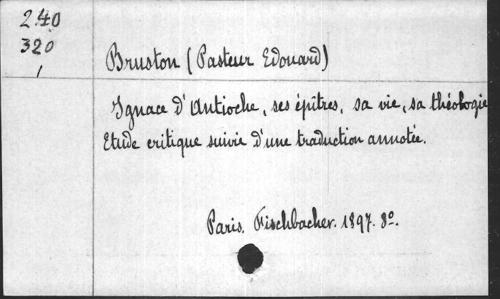 240
320
1
Bruston (Pasteur Edouard)
Ignace d'Antioche, ses épîtres, sa vie, sa théologie
Etude critique suivie d'une traduction annotée.
Paris. Fischbacher. 1897. 8º.